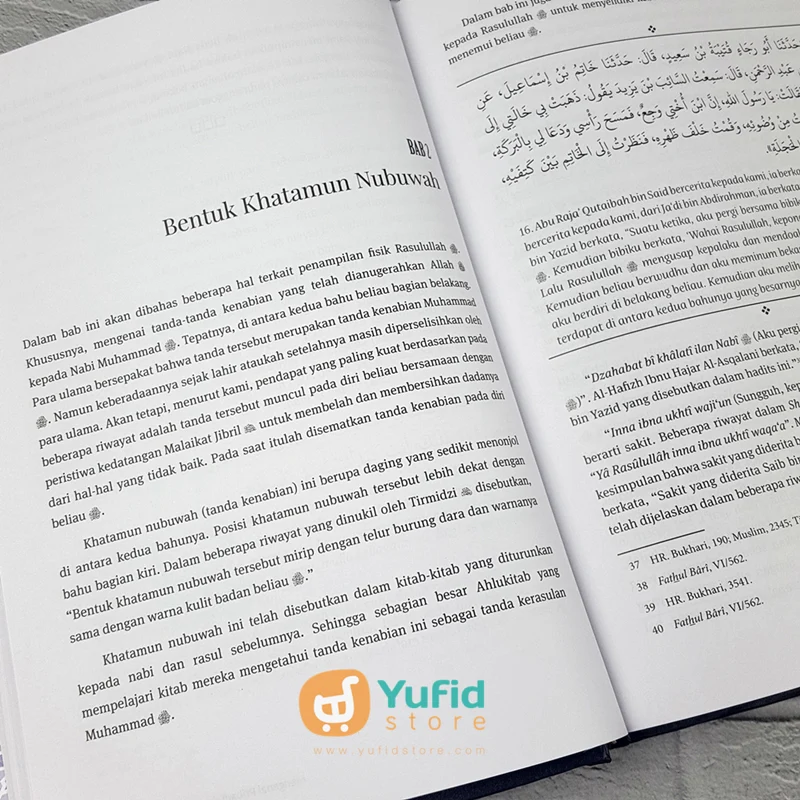 BAB 2
Bentuk Khatamun Nubuwah
Dalam bab ini akan dibahas beberapa hal terkait penampilan fisik Rasulullah ﷺ.
Khususnya, mengenai tanda-tanda kenabian yang telah dianugerahkan Allah
kepada Nabi Muhammad ﷺ. Tepatnya, di antara kedua bahu beliau bagian belakang.
Para ulama bersepakat bahwa tanda tersebut merupakan tanda kenabian Muhammad
ﷺ. Namun keberadaannya sejak lahir ataukah setelahnya masih diperselisihkan oleh
para ulama. Akan tetapi, menurut kami, pendapat yang paling kuat berdasarkan pada
beberapa riwayat adalah tanda tersebut muncul pada diri beliau bersamaan dengan
peristiwa kedatangan Malaikat Jibril untuk membelah dan membersihkan dadanya
dari hal-hal yang tidak baik. Pada saat itulah disematkan tanda kenabian pada diri
beliau ﷺ.
Khatamun nubuwah (tanda kenabian) ini berupa daging yang sedikit menonjol
di antara kedua bahunya. Posisi khatamun nubuwah tersebut lebih dekat dengan
bahu bagian kiri. Dalam beberapa riwayat yang dinukil oleh Tirmidzi disebutkan,
“Bentuk khatamun nubuwah tersebut mirip dengan telur burung dara dan warnanya
sama dengan warna kulit badan beliau ﷺ.”
Khatamun nubuwah ini telah disebutkan dalam kitab-kitab yang diturunkan
kepada nabi dan rasul sebelumnya. Sehingga sebagian besar Ahlukitab yang
mempelajari kitab mereka mengetahui tanda kenabian ini sebagai tanda kerasulan
Muhammad ﷺ.
Dalam bab ini juga
kepada Rasulullah ﷺ untuk
menemui beliau ﷺ.
حَدَّثَنَا أَبُو رَجَاءٍ قُتَيْبَةُ بْنُ سَعِيدٍ، قَالَ: حَدَّثَنَا حَاتِمُ بْنُ إِسْمَاعِيلَ، عَنِ
عَبْدِ الرَّحْمَنِ، قَالَ: سَمِعْتُ السَّائِبَ بْنَ يَزِيدَ يَقُولُ: ذَهَبَتْ بِي خَالَتِي إِلَى
فَقَالَتْ: يَا رَسُولَ اللهِ، إِنَّ ابْنَ أُخْتِي وَجِعٌ، فَمَسَحَ رَأْسِي وَدَعَا لِي بِالْبَرَكَةِ،
مِنْ وَضُوئِهِ، وَقُمْتُ خَلْفَ ظَهْرِهِ، فَنَظَرْتُ إِلَى الْخَاتِمِ بَيْنَ كَتِفَيْهِ،
الْحَجَلَةِ.
16. Abu Raja' Qutaibah bin Said bercerita kepada kami, ia berkata
bercerita kepada kami, dari Ja'di bin Abdirahman, ia berkata
bin Yazid berkata, “Suatu ketika, aku pergi bersama bibiku
ﷺ. Kemudian bibiku berkata, ‘Wahai Rasulullah,
Lalu Rasulullah ﷺ mengusap kepalaku dan
Kemudian beliau berwudhu dan aku meminum
aku berdiri di belakang beliau. Kemudian aku
terdapat di antara kedua bahunya yang besarnya
“Dzahabat bî khâlatî ilan Nabî ﷺ (Aku pergi
ﷺ)”. Al-Hafizh Ibnu Hajar Al-Asqalani berkata,
bin Yazid yang disebutkan dalam hadits ini.”
“Inna ibna ukhtî waji'un (Sungguh,
berarti sakit. Beberapa riwayat dalam
“Yâ Rasûlullâh inna ibna ukhtî waqa'a”.
kesimpulan bahwa sakit yang diderita
berkata, “Sakit yang diderita Saib bin
telah dijelaskan dalam beberapa
37 HR. Bukhari, 190; Muslim, 2345;
38 Fatḥul Bârî, VI/562.
39 HR. Bukhari, 3541.
40 Fatḥul Bârî, VI/562.
Yufid
store
www.yufidstore.com